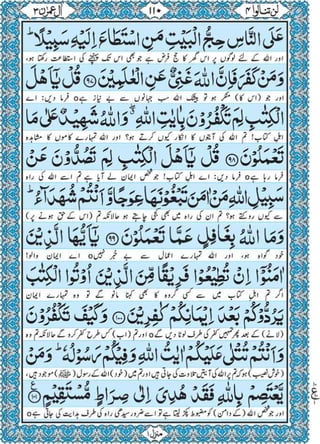 لن تنالوا ٤
١١٠
آل عمرٰن ٣
عَلَى النَّاسِ حِجُّ الْبَيْتِ مَنِ اسْتَطَاعَ اِلَيْهِ سَبِيْلًا ؕ
اور اللہ کے لئے لوگوں پر اس گھر کا حج فرض ہے جو بھی اس تک پہنچنے کی استطاعت رکھتا ہو،
وَمَنْ كَفَرَ فَاِنَّ اللّٰهَ غَنِىٌّ عَنِ الْعٰلَمِيْنَ ﴿۹۷﴾ قُلْ يٰۤاَهْلَ
اور جو (اس کا) منکر ہو تو بیشک اللہ سب جہانوں سے بے نیاز ہے o فرما دیں: اے
الْكِتٰبِ لِمَ تَكْفُرُوْنَ بِاٰيٰتِ اللّٰهِ ۖ وَاللّٰهُ شَهِيْدٌ عَلٰى مَا
اہلِ کتاب! تم اللہ کی آیتوں کا انکار کیوں کرتے ہو؟ اور اللہ تمہارے کاموں کا مشاہدہ
تَعْمَلُوْنَ ﴿۹۸﴾ قُلْ يٰۤاَهْلَ الْكِتٰبِ لِمَ تَصُدُّوْنَ عَنْ
فرما رہا ہے o فرما دیں: اے اہلِ کتاب! جو شخص ایمان لے آیا ہے تم اسے اللہ کی راہ
سَبِيْلِ اللّٰهِ مَنْ اٰمَنَ تَبْغُوْنَهَا عِوَجًا وَّاَنْتُمْ شُهَدَآءُ ؕ
سے کیوں روکتے ہو؟ تم ان کی راہ میں بھی کجی چاہتے ہو حالانکہ تم (اس کے حق ہونے پر)
وَمَا اللّٰهُ بِغَافِلٍ عَمَّا تَعْمَلُوْنَ ﴿۹۹﴾ يٰۤاَيُّهَا الَّذِيْنَ
خود گواہ ہو، اور اللہ تمہارے اعمال سے بے خبر نہیں o اے ایمان والو!
اٰمَنُوْۤا اِنْ تُطِيْعُوْا فَرِيْقًا مِّنَ الَّذِيْنَ اُوْتُوا الْكِتٰبَ
اگر تم اہلِ کتاب میں سے کسی گروہ کا بھی کہنا مانو گے تو وہ تمہارے ایمان
يَرُدُّوْكُمْ بَعْدَ اِيْمَانِكُمْ كٰفِرِيْنَ ﴿۱۰۰﴾ وَكَيْفَ تَكْفُرُوْنَ
(لانے) کے بعد پھر تمہیں کفر کی طرف لوٹا دیں گے o اور تم (اب) کس طرح کفر کرو گے حالانکہ تم وہ
وَاَنْتُمْ تُتْلٰى عَلَيْكُمْ اٰيٰتُ اللّٰهِ وَفِيْكُمْ رَسُوْلُهٗ ؕ وَمَنْ
(خوش نصیب) ہو کہ تم پر اللہ کی آیتیں تلاوت کی جاتی ہیں اور تم میں (خود) اللہ کے رسول (ﷺ) موجود ہیں،
يَّعْتَصِمْ بِاللّٰهِ فَقَدْ هُدِىَ اِلٰى صِرَاطٍ مُّسْتَقِيْمٍ ﴿۱۰۱﴾
اور جو شخص اللہ (کے دامن) کو مضبوط پکڑ لیتا ہے تو اسے ضرور سیدھی راہ کی طرف ہدایت کی جاتی ہے o
منزل ۱